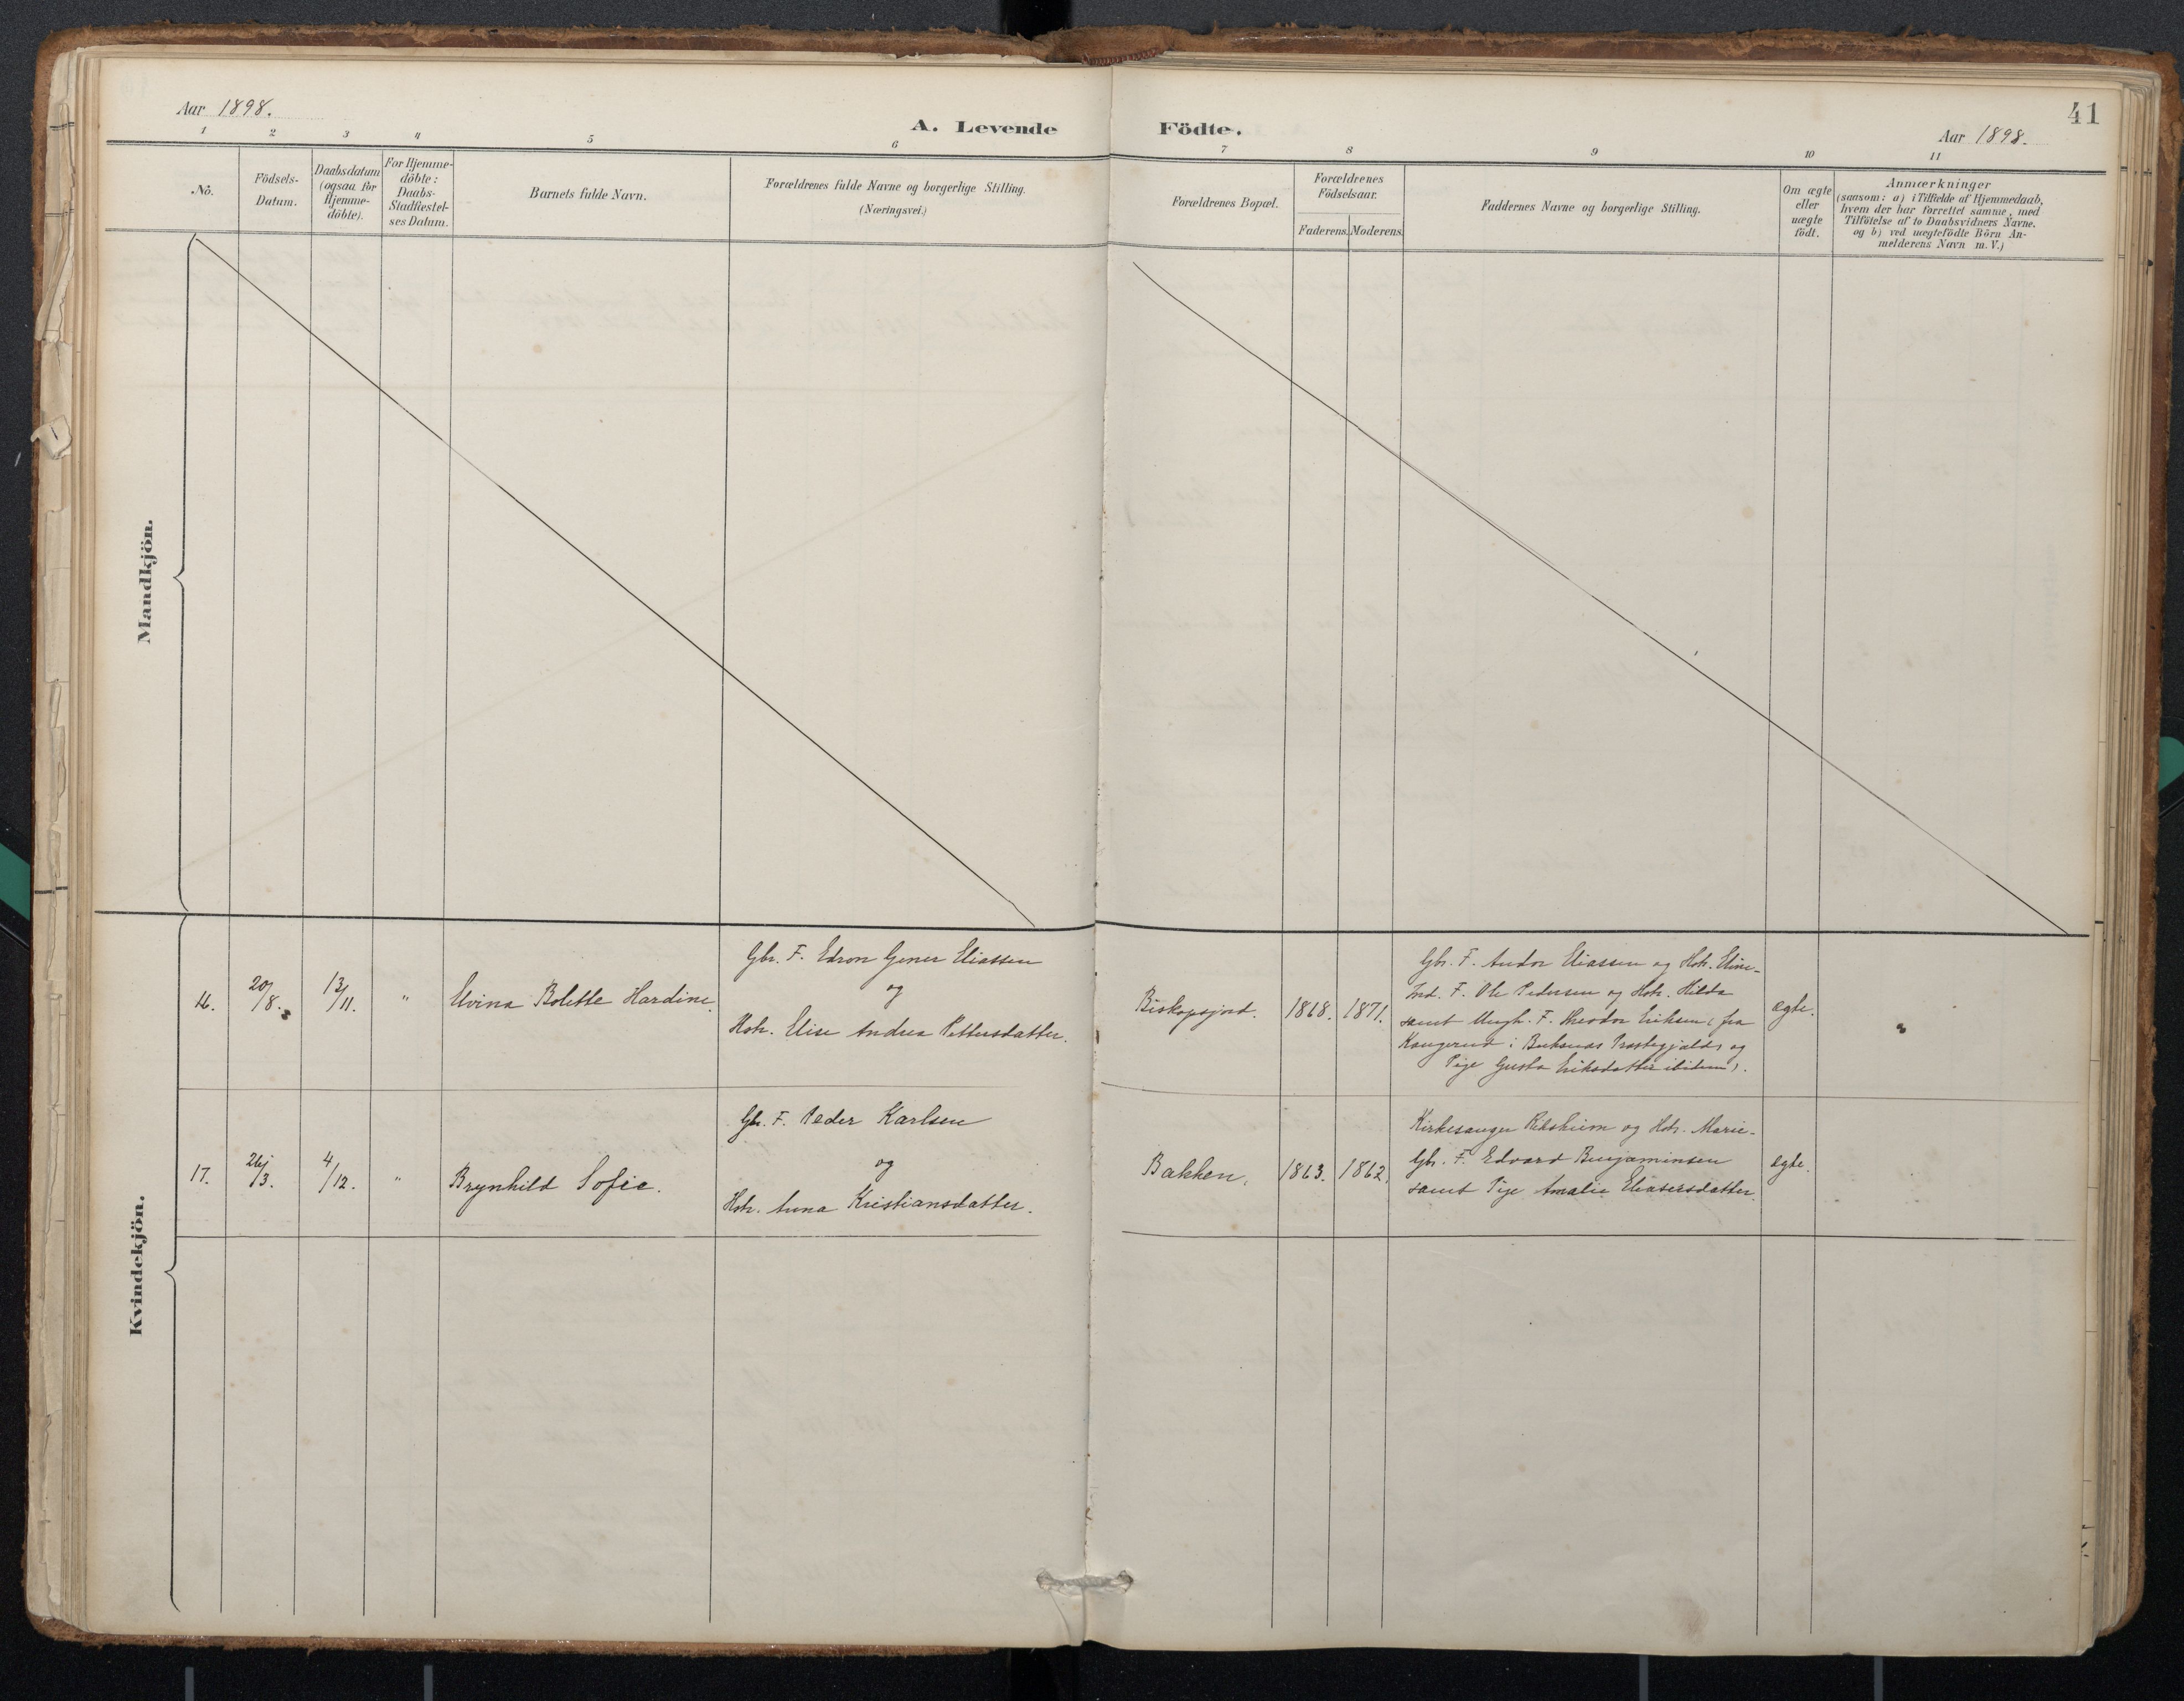 Aar 1898.
A. Levende Födte.
41
Aar 1898.
1 2 3 4 5 6 7 8 9 10 11
No.
Födsels-
Datum.
Daabsdatum
(ogsaa for
Hjemme-
döbte).
For Hjemme-
döbte:
Daabs-
Stadfæstel-
ses Datum.
Barnets fulde Navn.
Forældrenes fulde Navne og borgerlige Stilling.
(Næringsvei.)
Forældrenes Bopæl.
Forældrenes
Födselsaar.
Faderens. Moderens.
Faddernes Navne og borgerlige Stilling.
Om ægte
eller
uægte
födt.
Anmærkninger
(saasom: a) i Tilfælde af Hjemmedaab,
hvem der har forrettet samme, med
Tilföielse af to Daabsvidners Navne.
og b) ved uægtefödte Börn An-
melderens Navn m. V.)
Mandkjön.
Kvindekjön.
16.
20/8.
13/11.
"
Elvina Bolette Hardine.
Gbr. F. Edron Gener Eliassen
og
Hstr. Elise Andrea Pettersdatter.
Biskopsjord.
1868.
1871.
Gbr. F. Andor Eliassen og Hstr. Eline-
Ind. F. Ole Pedersen og Hstr. Hilda
samt Ungk. F. Theodor Eriksen (fra
i Buksnæs Præstegjæld) og
Pige Gusta Eriksdatter ibidem).
ægte.
17.
26/3.
4/12.
"
Brynhild Sofie.
Gbr. F. Peder Karlsen
og
Hstr. Anna Kristiansdatter.
Bakken.
1863.
1862.
Kirkesanger Riksheim og Hstr. Marie-
Gbr. F. Edvard Benjaminsen
samt Pige Amalie Eliasersdatter.
ægte.